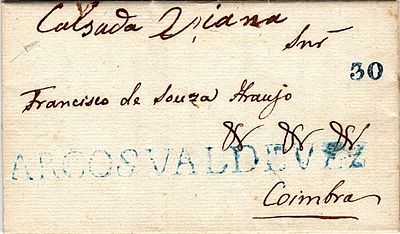 Calsada Viana
Snr
30
Francisco de Souza Araujo
ARCOS VALDEVEZ
Coimbra